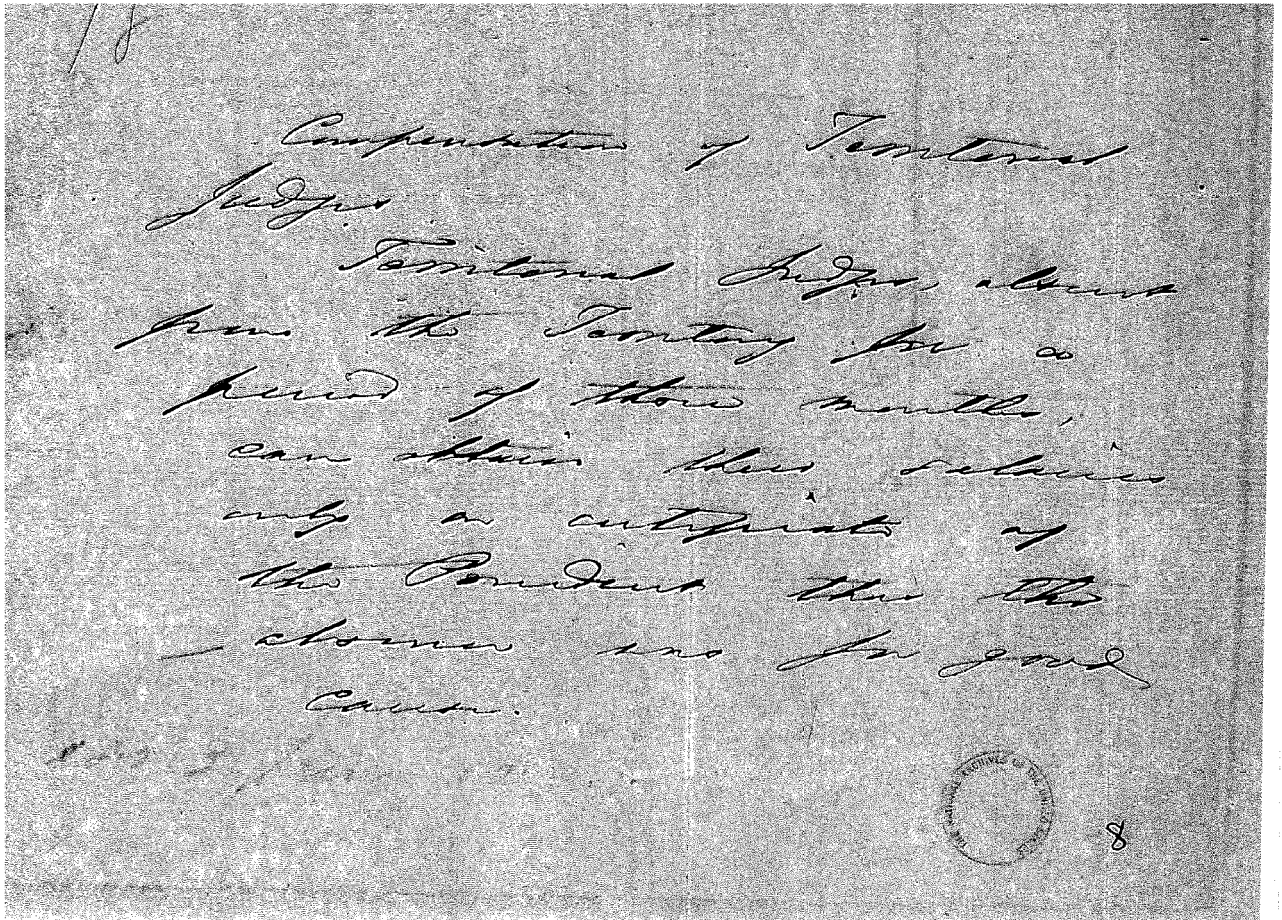 18
Compensation of Territorial
Judges
Territorial Judges, absent
from the Territory for a
period of three months,
can obtain their salaries
only on certificate of
the President that the
absence was for good
cause.
THE NATIONAL ARCHIVES OF THE UNITED STATES
8